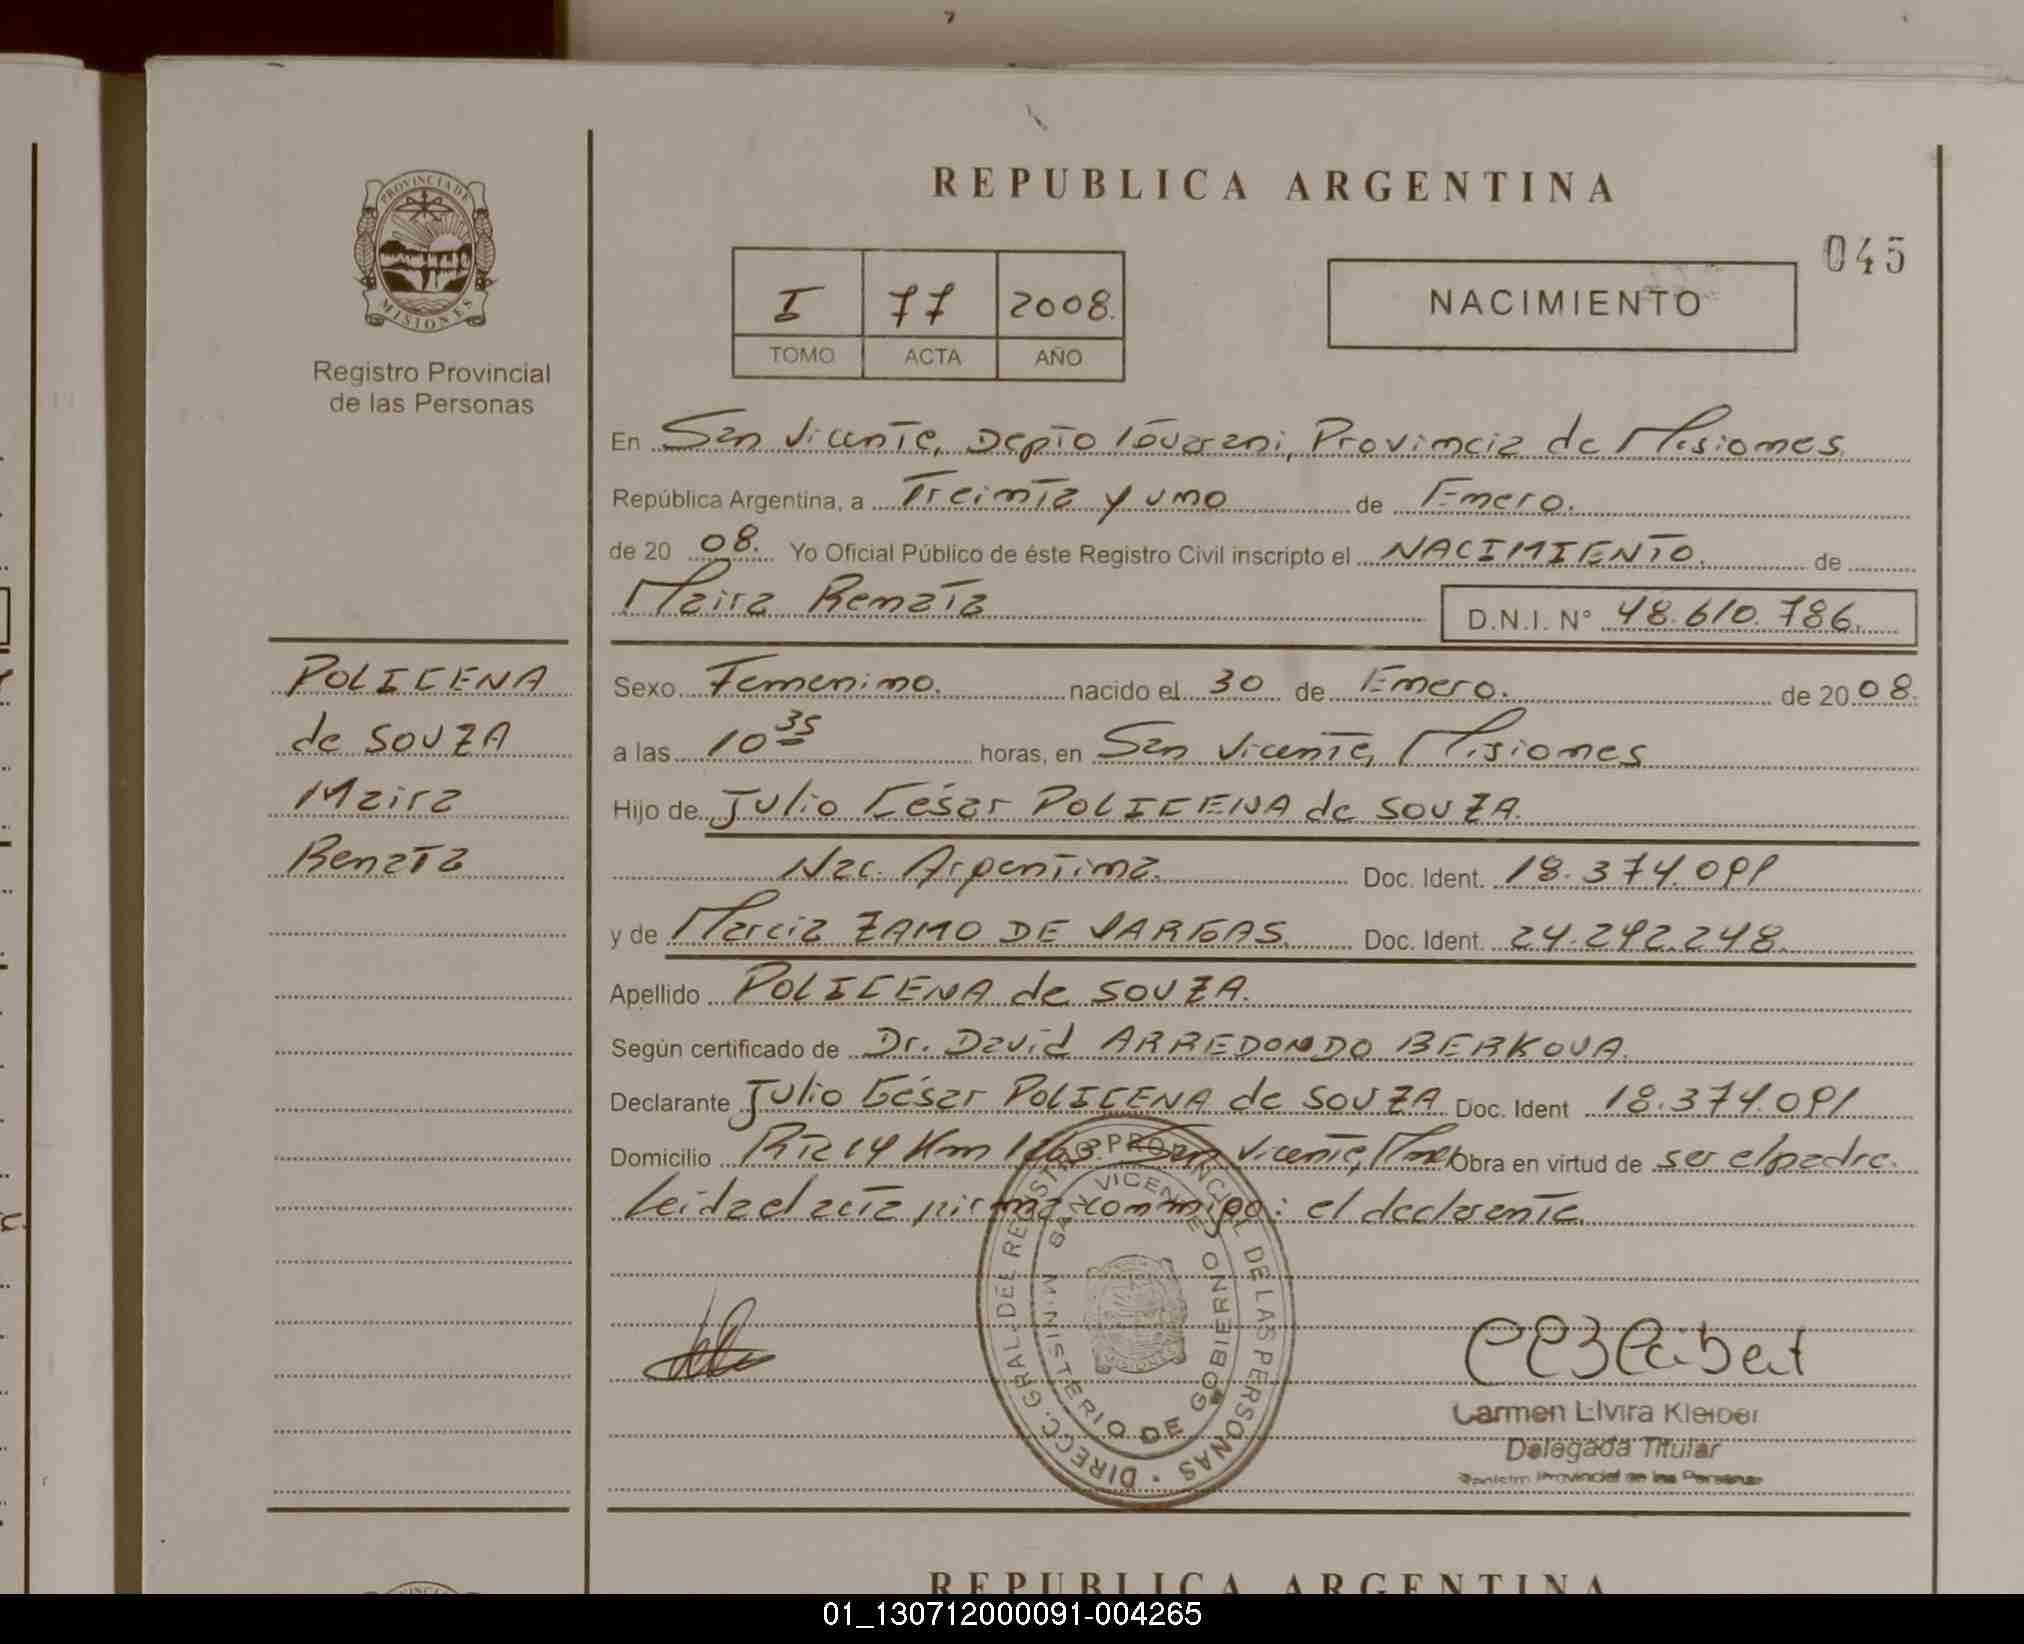 REPUBLICA ARGENTINA
045
PROVINCIA DE MISIONES
Registro Provincial
de las Personas
I 77 2008.
TOMO ACTA AÑO
NACIMIENTO
En San Vicente, Depto Guarani, Provincia de Misiones
República Argentina, a Treinta y uno de Enero.
de 20 08. Yo Oficial Público de éste Registro Civil inscripto el NACIMIENTO. de
Maira Renata D.N.I. N° 48.610.786.
POLICENA
de SOUZA
Maira
Renata
Sexo Femenino. nacido el 30 de Enero. de 20 08.
a las 10 35 horas, en San Vicente, Misiones
Hijo de Julio César POLICENA de SOUZA.
Nac. Argentina. Doc. Ident. 18.374.091
y de Marcia ZAMO DE VARGAS. Doc. Ident. 24.292.248.
Apellido POLICENA de SOUZA.
Según certificado de Dr. David ARREDONDO BERKOVA.
Declarante Julio César POLICENA de SOUZA Doc. Ident 18.374.091
Domicilio Rta 14 Km San Vicente, Mnes Obra en virtud de ser el padre.
Leida el acta firma conmigo: el declarante
DIRECC. GRAL. DEL REGISTRO PROVINCIAL DE LAS PERSONAS
SAN VICENTE
MINISTERIO DE GOBIERNO
Carmen Elvira Kleiber
Delegada Titular
Registro Provincial de las Personas
REPUBLICA ARGENTINA
01_130712000091-004265